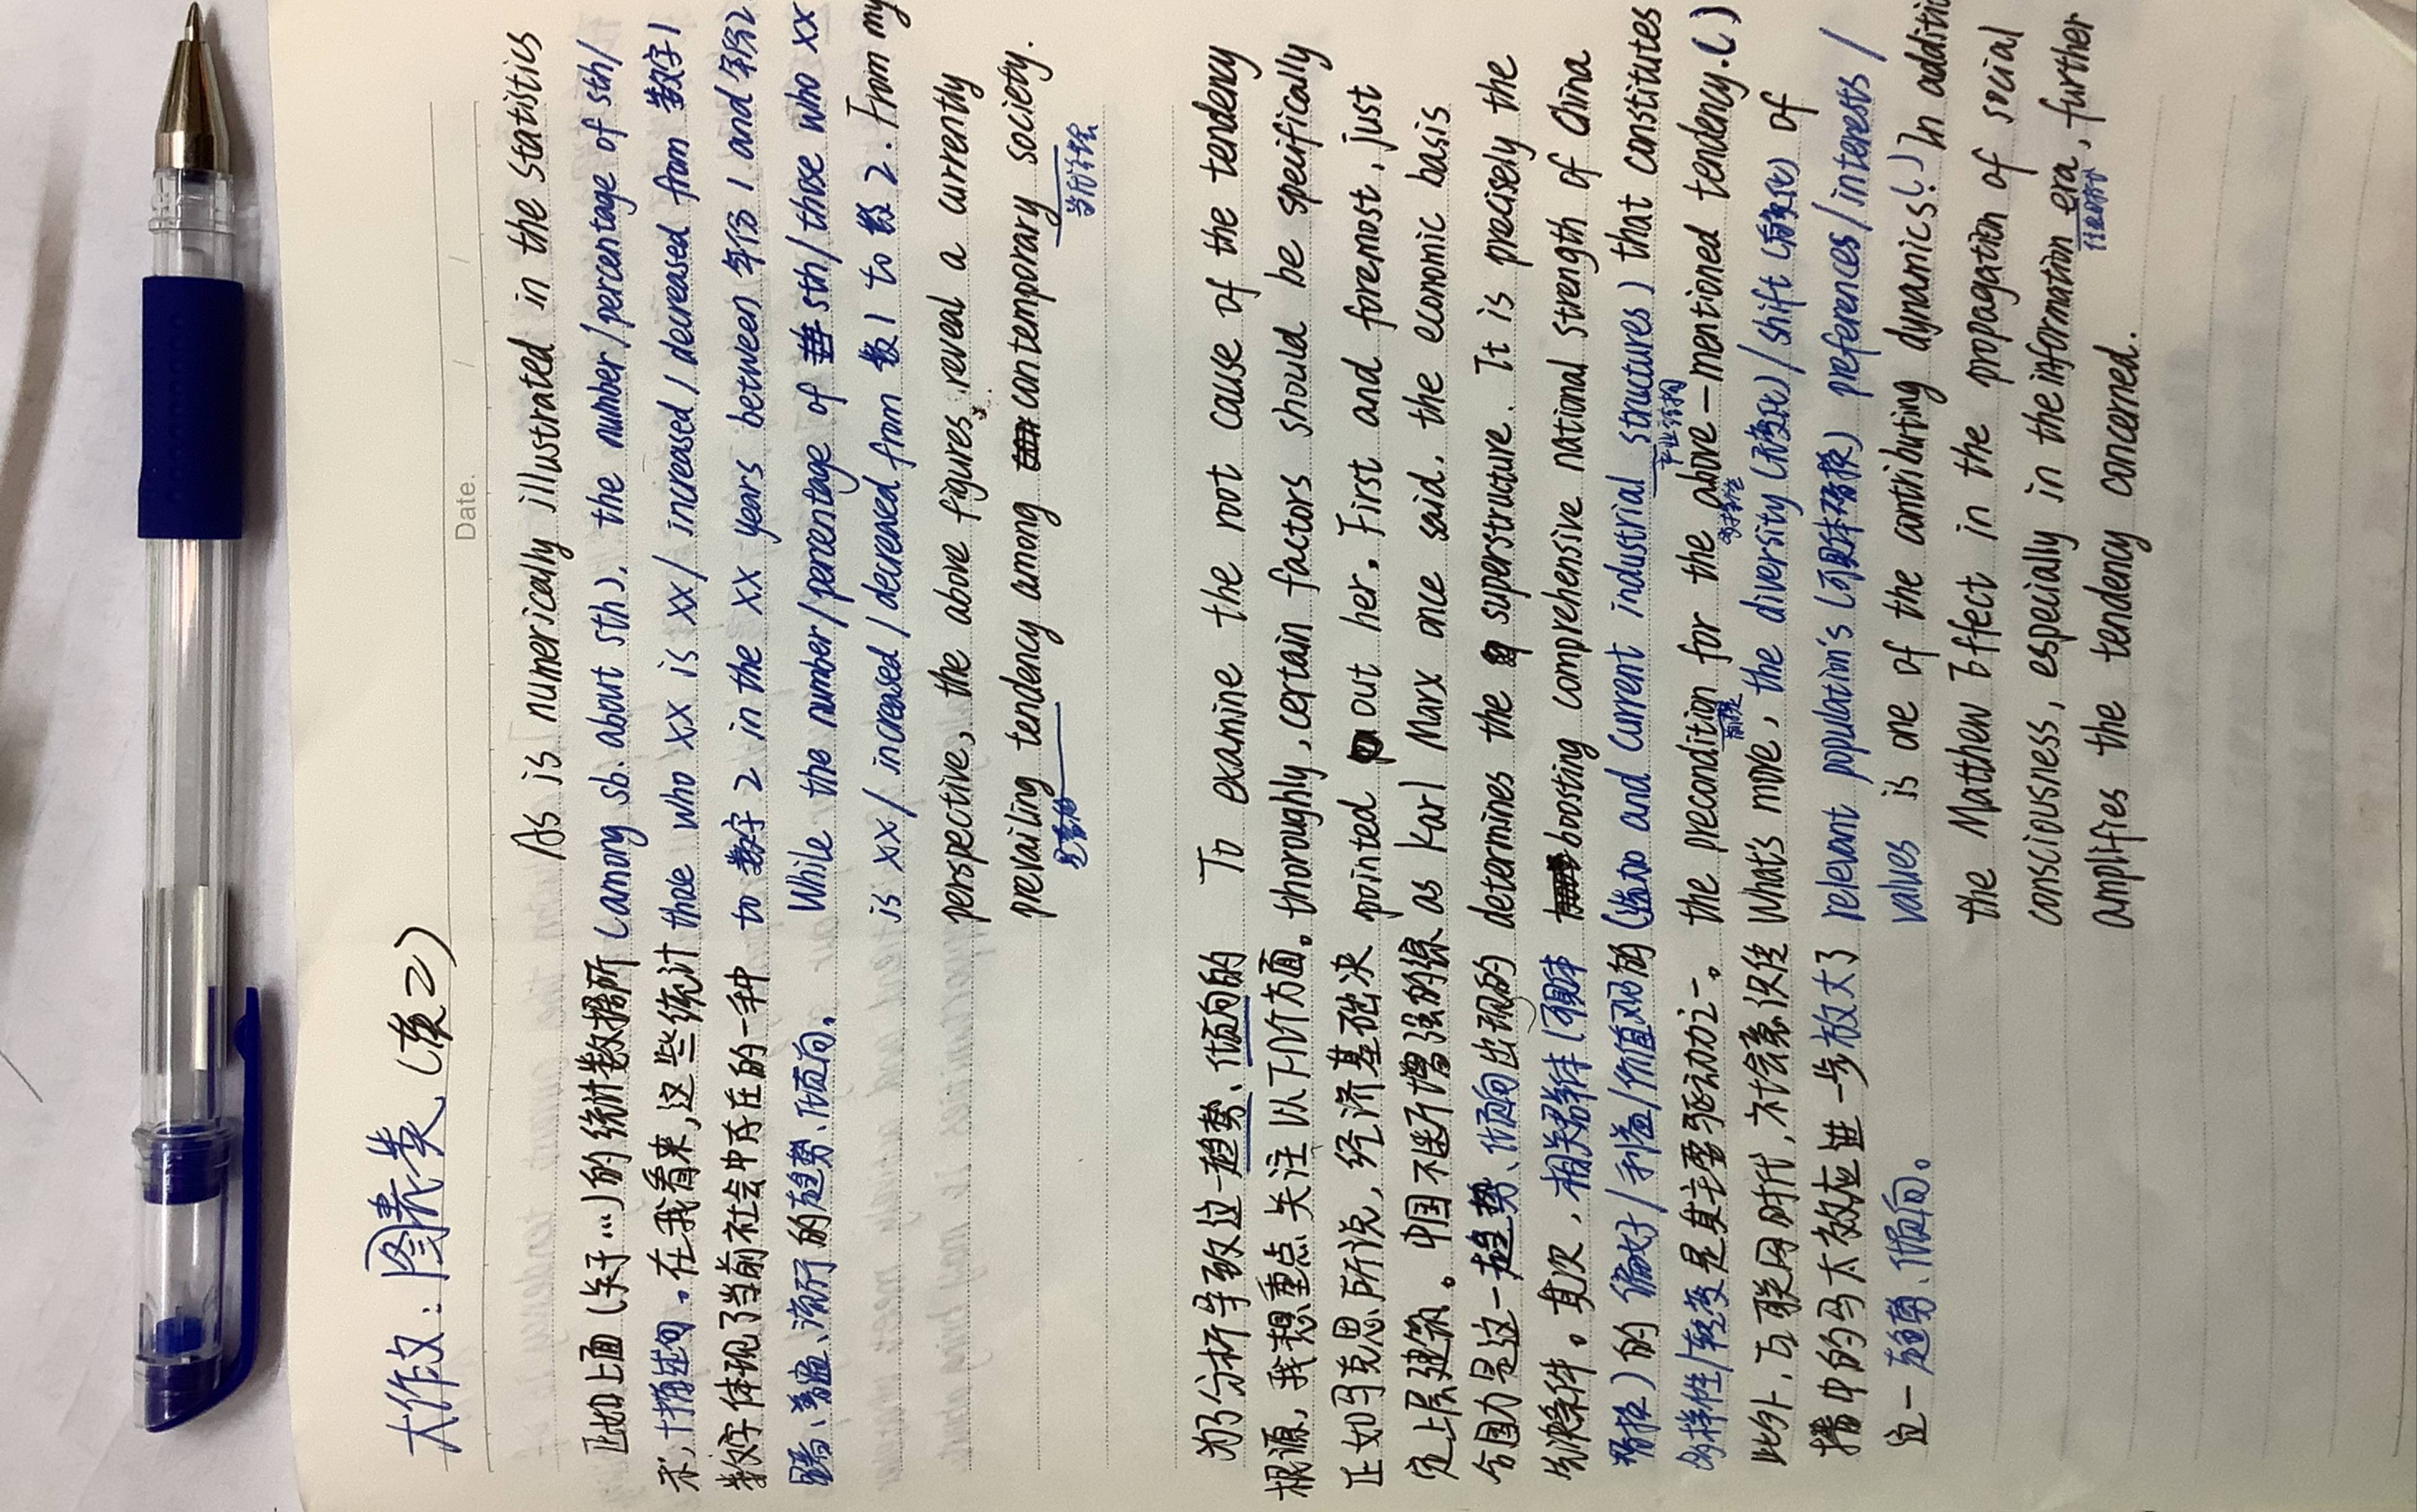 Date. / /
大作文：图表类（英二）
正如上面（关于…）的统计数据所
示，十描述句。在我看来，这些统计
数字体现了当前社会中存在的一种
流行的趋势、倾向。
As is numerically illustrated in the statistics
(among sb. about sth). the number/percentage of sth/
those who xx is xx/ increased / decreased from 数字1
to 数字2 in the xx years between 年份1 and 年份2
While the number/percentage of sth/those who xx
is xx/ increased / decreased from 数1 to 数2. From my
perspective, the above figures reveal a currently
prevailing tendency among contemporary society.
当代社会
为了分析导致这一趋势、倾向的
根源，我想重点关注以下几个方面。
正如马克思所说，经济基础决
定上层建筑。中国不断增强的综
合国力是这一趋势、倾向出现的
先决条件。其次，相关群体（可具体
替换）的偏好/利益/价值观的
多样性/转变是其主要驱动力之一。
此外，互联网时代，社会意识传
播中的马太效应进一步放大了
这一趋势、倾向。
To examine the root cause of the tendency
thoroughly, certain factors should be specifically
pointed out her. First and foremost, just
as Karl Marx once said. the economic basis
determines the superstructure. It is precisely the
boosting comprehensive national strength of China
(追加 and current industrial structures) that constitutes
产业结构
the precondition for the above-mentioned tendency.()
前提
What's more, the diversity (多变化)/shift (转变) of
relevant population's (可具体替换) preferences/interests/
values is one of the contributing dynamics.() In additi
the Matthew Effect in the propagation of social
consciousness, especially in the information era, further
信息时代
amplifies the tendency concerned.